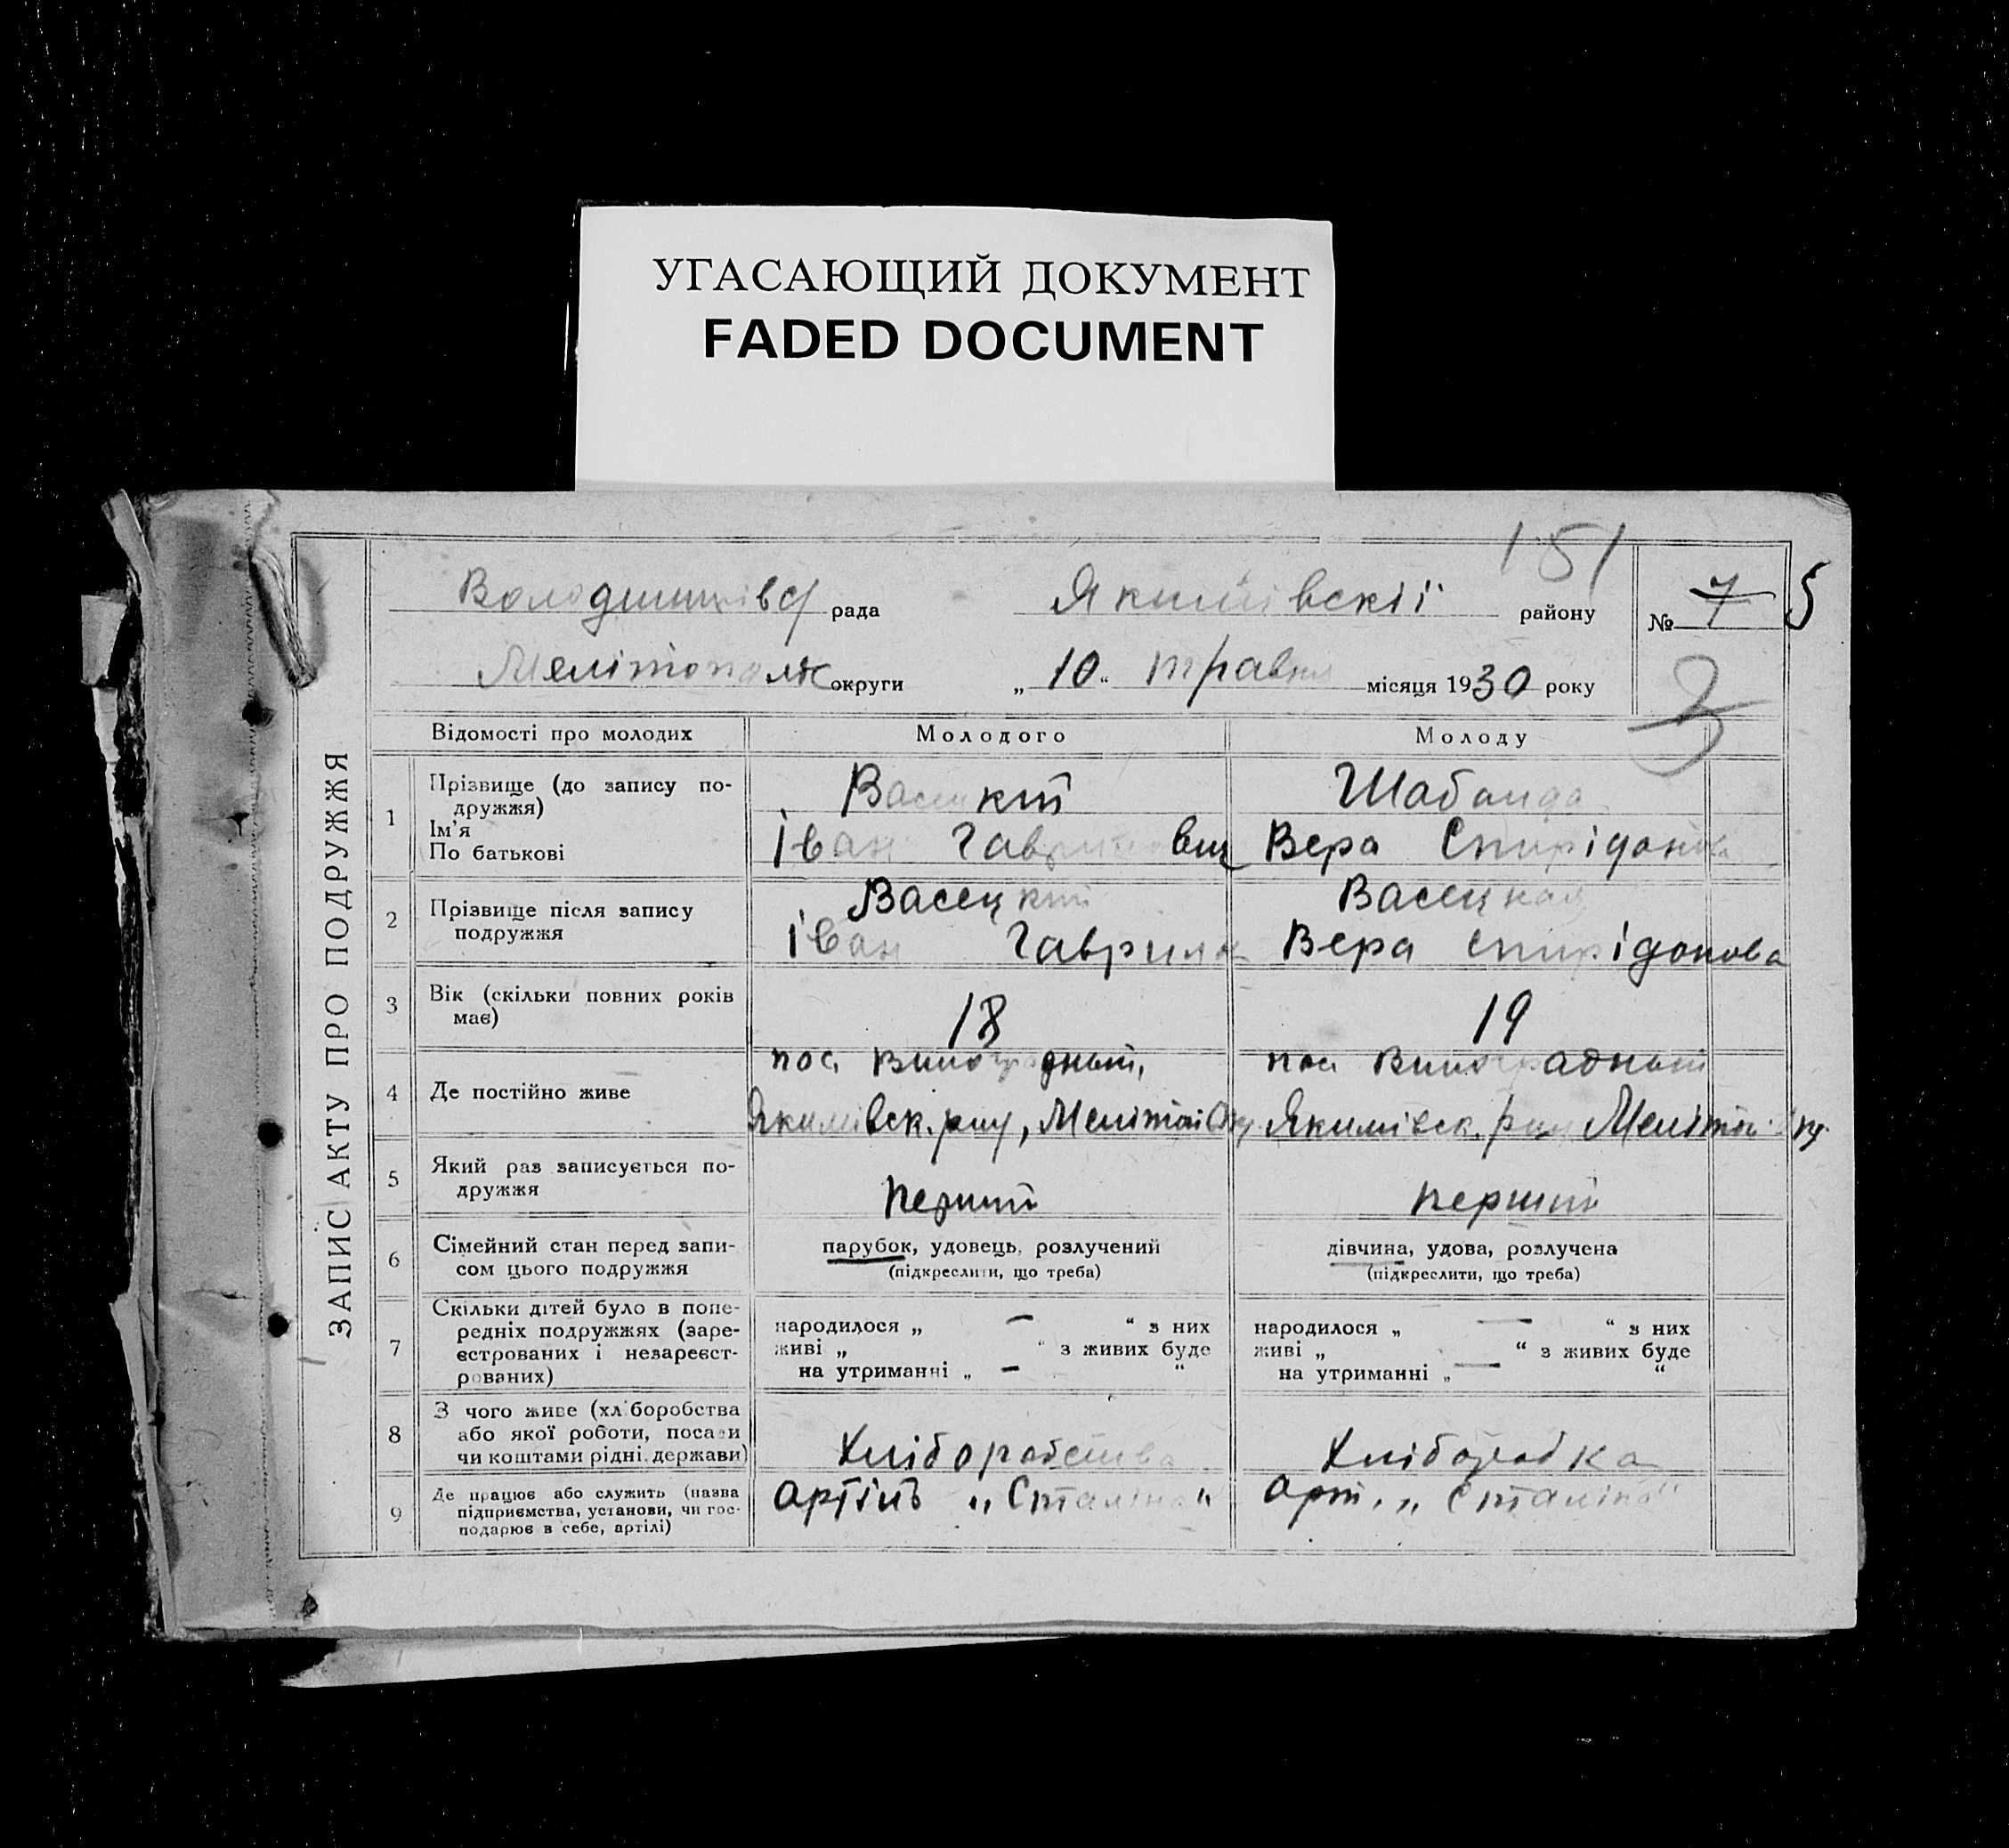 УГАСАЮЩИЙ ДОКУМЕНТ
FADED DOCUMENT
151
рада
Якимівскії району
№ 7 5
Мелітополж округи
„ 10 “ травня місяця 1930 року
3
ЗАПИС АКТУ ПРО ПОДРУЖЖЯ
Відомості про молодих
Молодого
Молоду
1
Прізвище (до запису по-
дружжя)
Ім’я
По батькові
Васецкий
Іван Гаврилович
Шабанда
Вера Спирідонова
2
Прізвище після запису
подружжя
Васецкий
Іван Гаврилов
Васецкая
Вера Спирідонова
3
Вік (скільки повних років
має)
18
19
4
Де постійно живе
пос. Виноградный,
Якимівск. рну, Меліто
пос Виноградный
Якимівск. рну Меліто
5
Який раз записується по-
дружжя
перший
перший
6
Сімейний стан перед запи-
сом цього подружжя
парубок, удовець, розлучений
(підкреслити, що треба)
дівчина, удова, розлучена
(підкреслити, що треба)
7
Скільки дітей було в попе-
редніх подружжях (заре-
єстрованих і незареєст-
рованих)
народилося „ — “ з них
живі „ “ з живих буде
на утриманні „ — “
народилося „ — “ з них
живі „ “ з живих буде
на утриманні „ — “
8
З чого живе (хліборобства
або якої роботи, посади
чи коштами рідні, держави)
Хліборобства
Хлібороб ка
9
Де працює або служить (назва
підприємства, установи, чи гос-
подарює в себе, артілі)
Артіль „Сталіна“
Арт. „Сталіна“